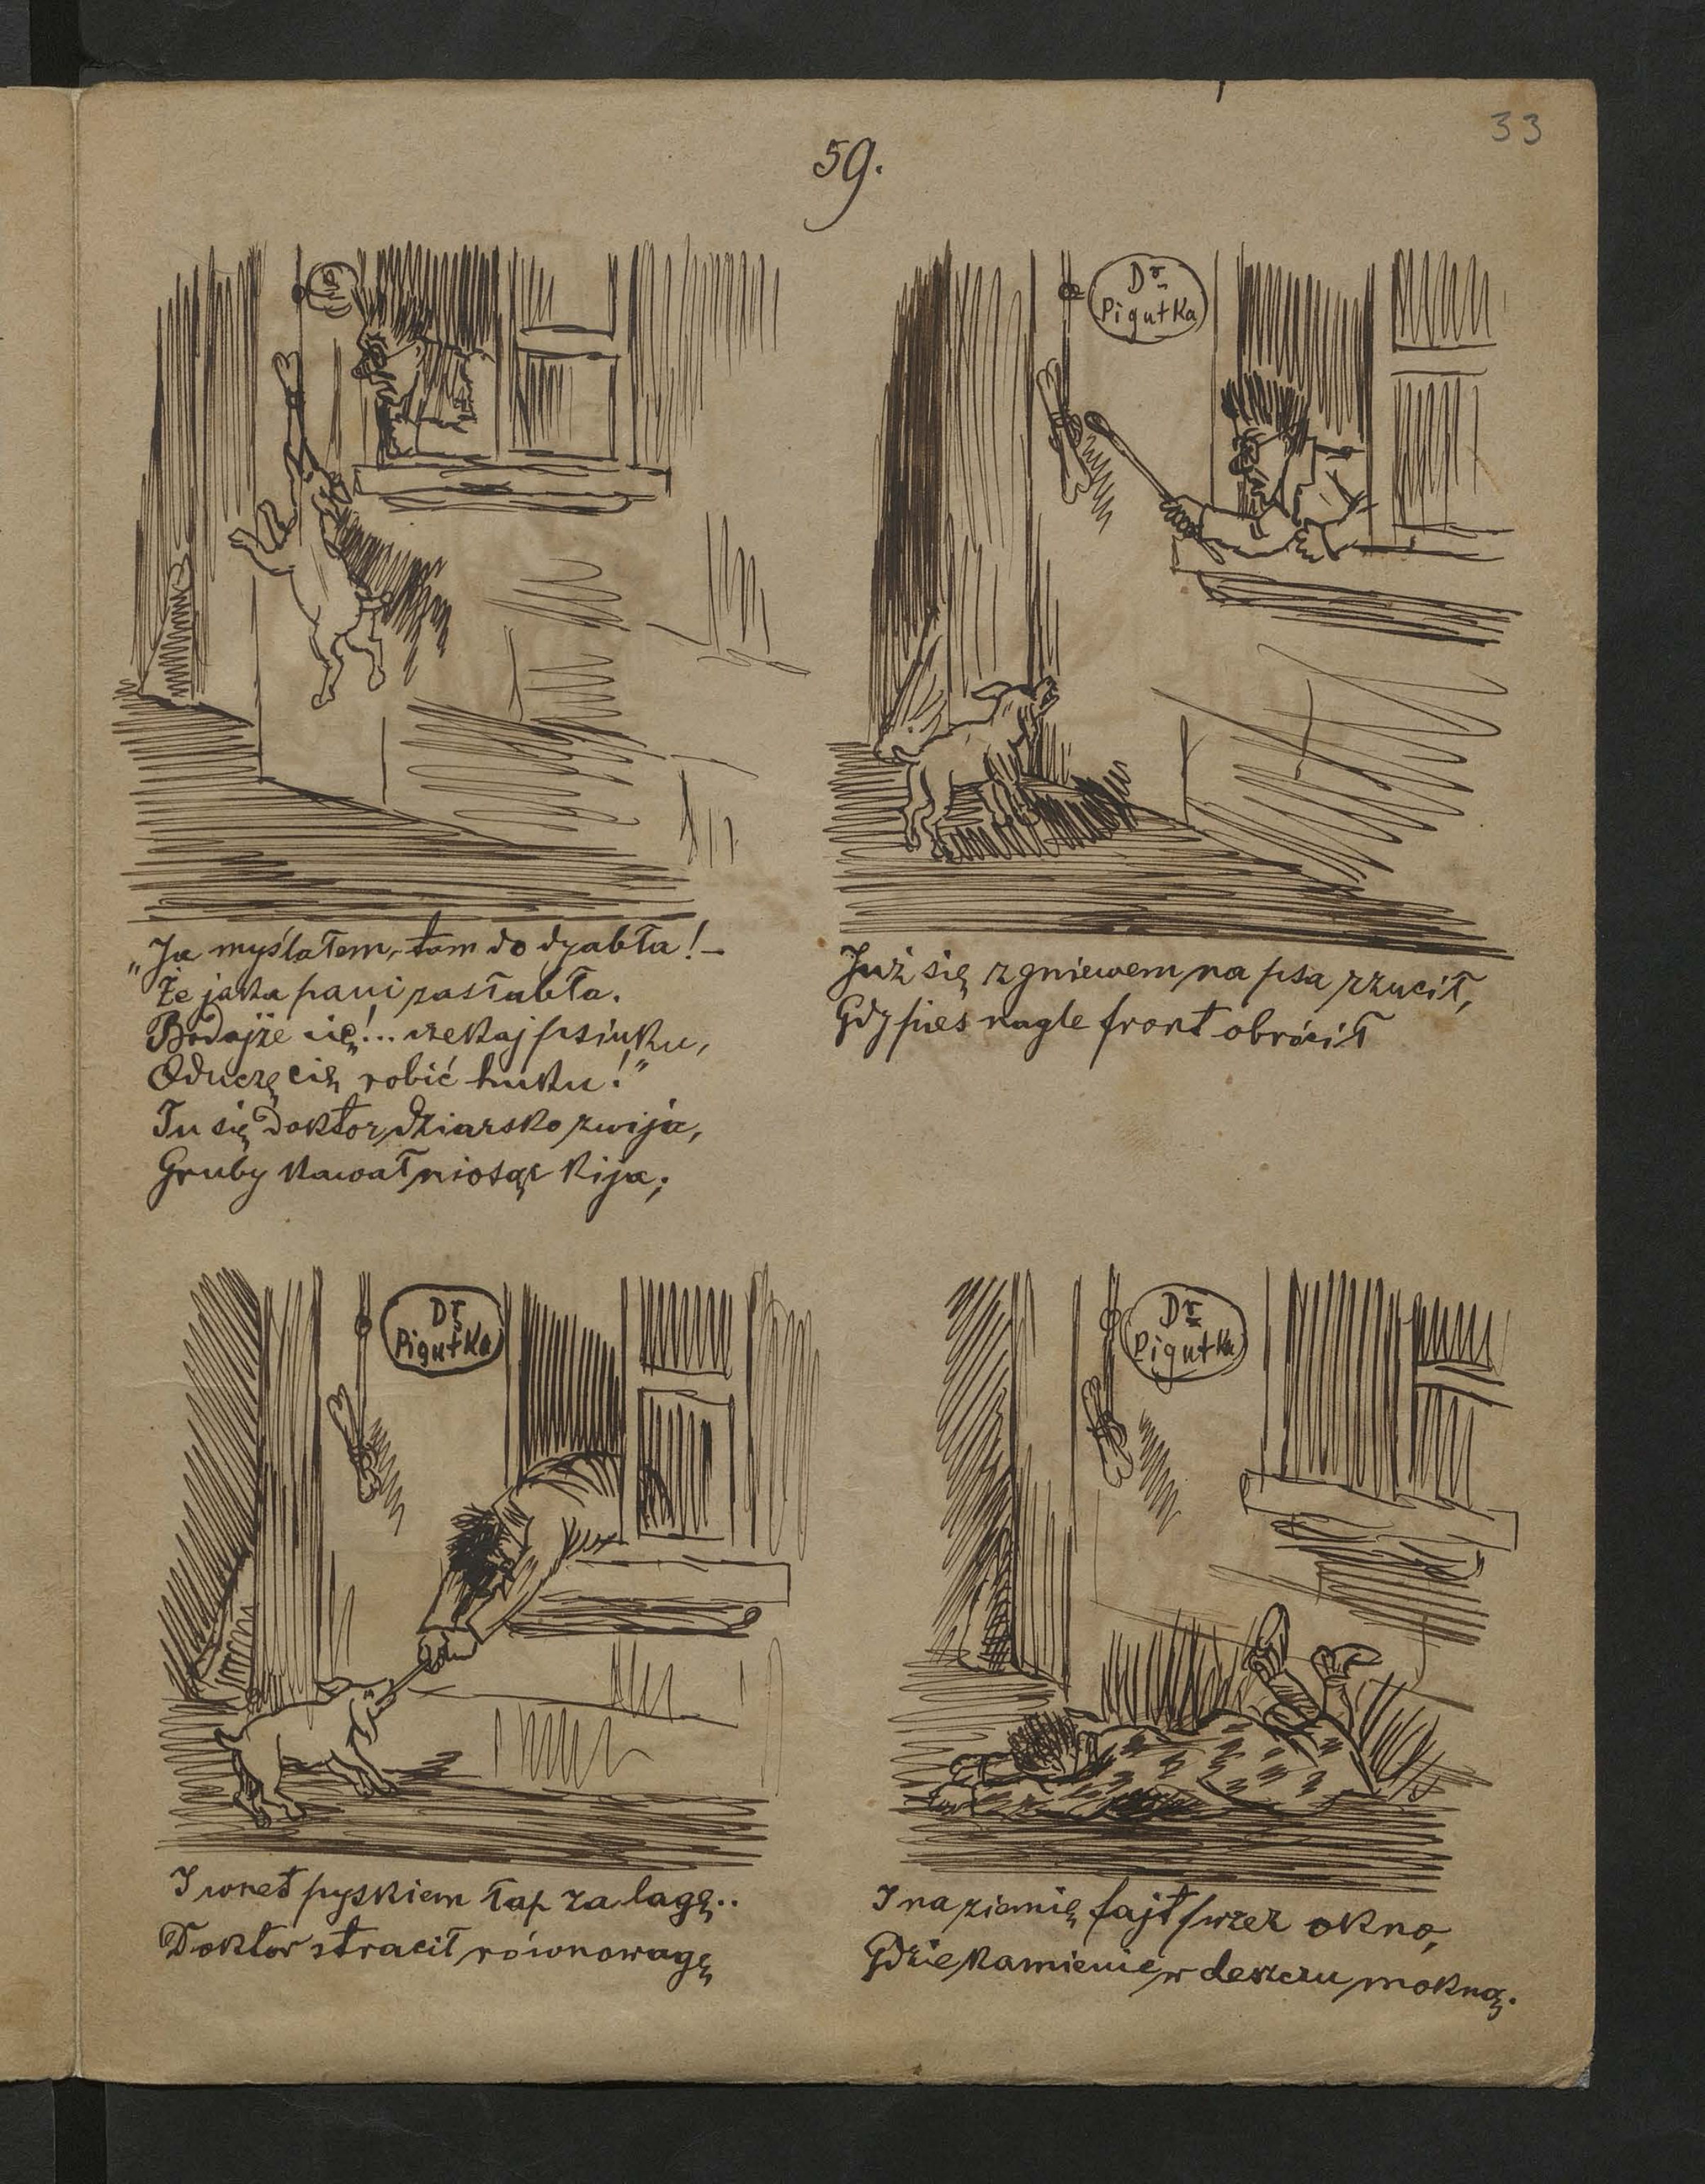 33
59.
Dr
Pigułka
„Ja myślałem, - tam do dyabła! -
Że jaka pani zasłabła.
Bodajże cię!... czekaj psiuku,
Oduczę cię robić huku!"
Tu się Doktor dziarsko zwija,
Gruby kawał niosąc kija;
Już się z gniewem na psa rzucił,
Gdy pies nagle front obrócił
Dr
Pigułka
Dr
Pigułka
I wnet pyskiem łap za lagę..
Doktor stracił równowagę
I na ziemię fajt przez okno,
Gdzie kamienie w deszczu mokną.